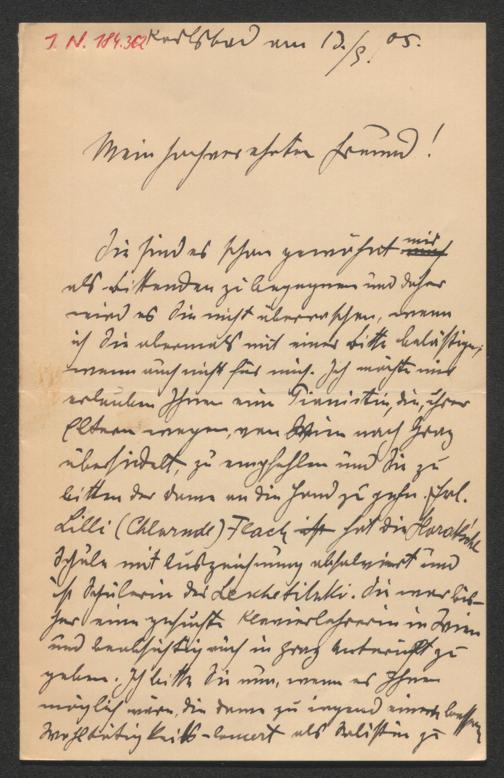 I. N. 184.362
Karlsbad am 13./9. 05.
Mein hochverehrter Freund!
Sie sind es schon gewöhnt mir
als Bittenden zu begegnen und daher
wird es Sie nicht überraschen, wenn
ich Sie abermals mit einer Bitte belästige,
wenn auch nicht für mich. Ich möchte mir
erlauben Ihnen eine Pianistin, die, ihrer
Eltern wegen, von Wien nach Graz
übersiedelt, zu empfehlen und Sie zu
bitten der Dame an die Hand zu gehn. Frl.
Lilli Flach hat die Horak'sche
Schule mit Auszeichnung absolviert und
ist Schülerin des Leschetitzki. Sie war bis-
her eine gesuchte Klavierlehrerin in Wien
und beabsichtigt auch in Graz Unterricht zu
geben. Ich bitte Sie nun, wenn es Ihnen
möglich wäre, die Dame zu irgend einem bessern
Wohltätigkeits-Concert als Solistin zu